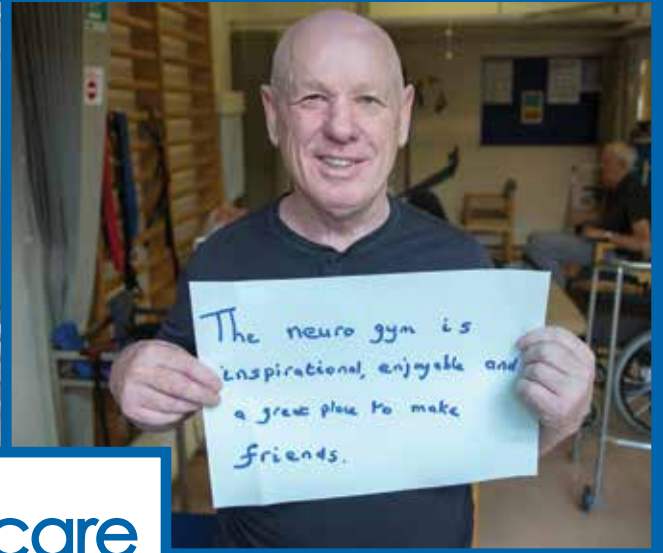 The neuro gym is
inspirational, enjoyable and
a great place to make
friends.
care